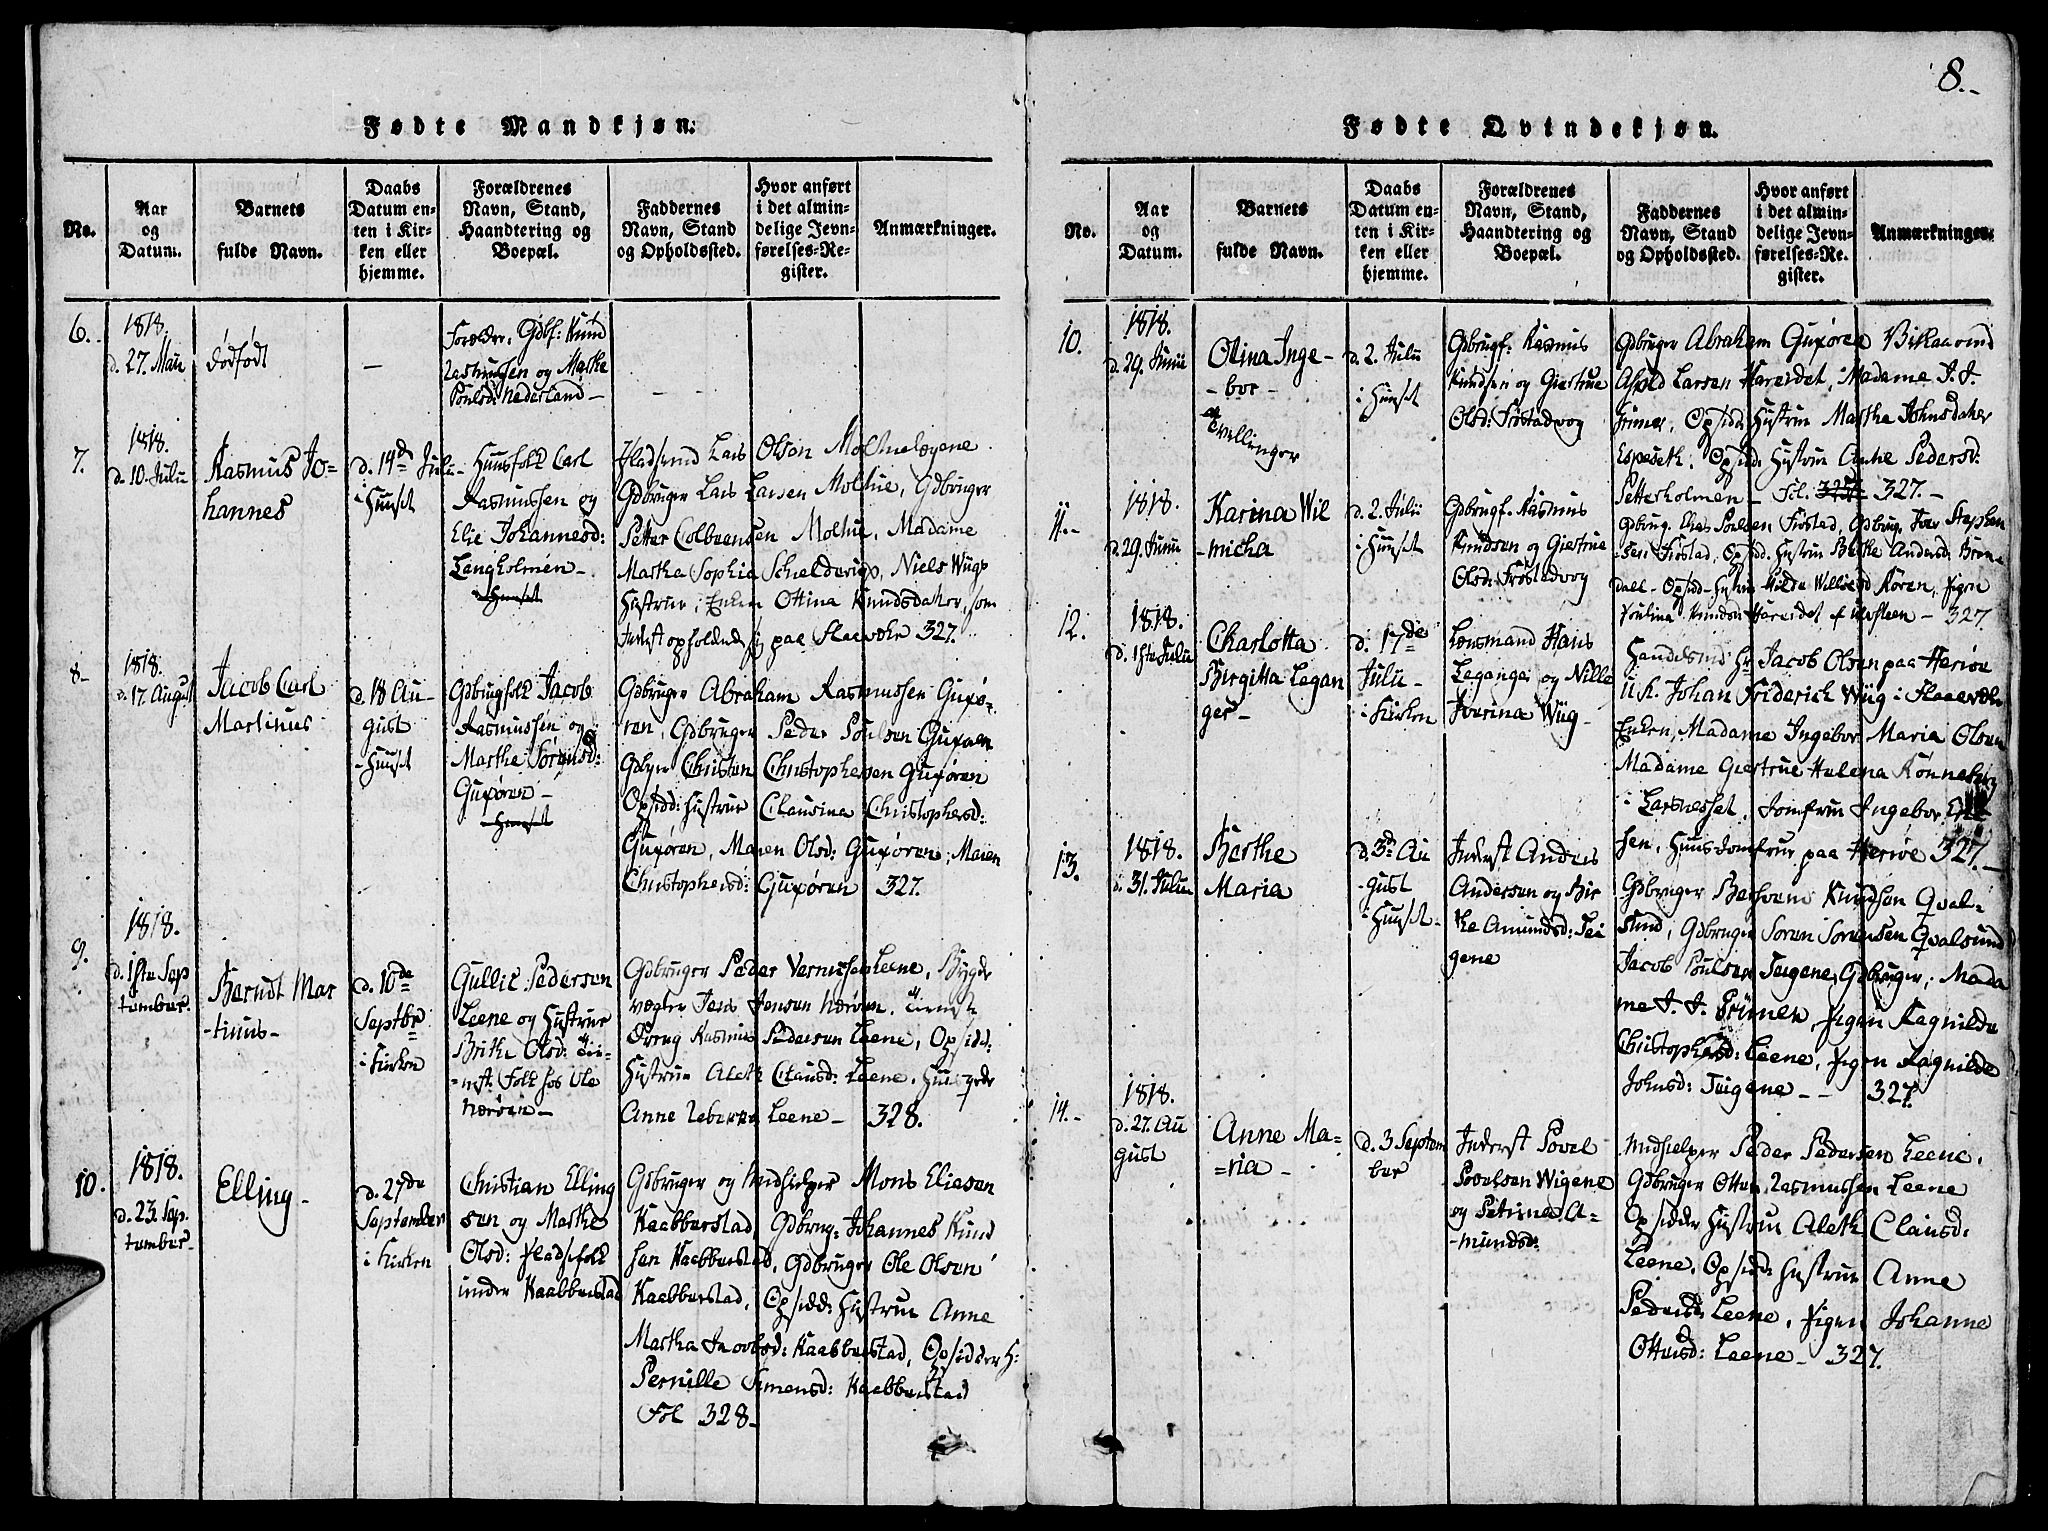 8.
Fødte Mandkjøn.
No.
Aar
og
Datum.
Barnets
fulde Navn.
Daabs
Datum en-
ten i Kir-
ken eller
hjemme.
Forældrenes
Navn, Stand,
Haandtering og
Boepæl.
Faddernes
Navn, Stand
og Opholdssted.
Hvor anført
i det almin-
delige Jevn-
førelses-Re-
gister.
Anmærkninger.
6.
1818.
d. 27. Maii
dødfødt
—
Forældre, Gdbf: Knud
Rasmussen og Marthe
Poulsd: Nederland —
7.
1818.
d. 10. Julii
Rasmus Jo-
hannes
d. 14de Juli
i Huuset
Huusfolk Carl
Rasmussen og
Elie Johannesd:
Langholmen —
i Huuset
Pladsemd Lars Olson Moltuebøgene
Gdbruger Lars Larsen Moltue, Gdbruger
Petter Colbeensen Moltu, Madame
Martha Sophia Schelderup, Niels Wügs
Hustrue, Enken Ottina Knudsdatter, som
Inderst opholdende sig paa Flaavær 327.
8-
1818.
d. 17. August
Jacob Carl
Martinus
d. 18 Au-
gust
i Huuset
Gdbrugfolk Jacob
Rasmussen og
Marthe Sørensd:
Gurøren —
Huuset
Gdbruger Abraham Rasmussen Gurø-
ren, Gdbruger Peder Poulsen Gurøren
Gdbgr Christen Christophersen Gurøren
Opsidd: Hustrue Clausina Christophersd:
Gurøren, Maren Olsd: Gurøren, Maren
Christophersd: Gurøren 327.
9.
1818.
d. 1ste Sep
tember.
Berndt Mar
-tinus —
d. 10de
Septbr
i Kirken
Gullic Pedersen
Leene og Hustrue
Brithe Olsd: Tie-
-nst. Folk hos Ole
Nærøen —
Gdbruger Peder Vernissen Leene, Bygde
vægter Jens Jensen Nærøen, Tienste
Dreng Rasmus Pedersen Leene, Opsidd:
Hustrue Aleth Clausd: Leene, Huus pige
Anne Rebecca Leene — 328.
10.
1818.
d. 23. Sep.
tember —
Elling —
d. 27de
September
i Kirken
Christian Elling
sen og Marthe
Olsd: Pladsefolk
under Kaabberstad
Gdbruger og Medhielper Mons Eliasen
Kaabberstad, Gdbrug: Johannes Knud
sen Kaabberstad, Gdbruger Ole Olsen
Kaabberstad, Opsidd: Hustrue Anne
Martha Jacobsd: Kaabberstad, Opsidder H:
Pernille Simensd: Kaabberstad
Fol 328 —
Fødte Qvindekjøn.
No.
Aar
og
Datum.
Barnets
fulde Navn.
Daabs
Datum en-
ten i Kir-
ken eller
hjemme.
Forældrenes
Navn, Stand,
Haandtering og
Boepæl.
Faddernes
Navn, Stand
og Opholdssted.
Hvor anført
i det almin-
delige Jevn-
førelses-Re-
gister.
Anmærkninger.
10.
1818.
d. 29. Junii
Olina Inge-
-bor —
Tvillinger
d. 2. Julii
i Huuset
Gdbrugf. Rasmus
Knudsen og Giertrue
Olsd: Frøstadvog
Gdbruger Abraham Gurøren
Larsen Hareidet, Madame J. J.
Opsidd: Hustrue Marthe Johnsdatter
Espeseth, Opsidd: Hustrue Anne Pedersd:
Petterholmen — Fol. 327. —
11.-
1818.
d. 29. Junii
Karina Wil
-micha
d. 2. Julii
i Huuset
Gdbrugf. Rasmus
Knudsen og Giertrue
Olsd: Frøstadvog
Gdbrug. Elias Poulsen Frøstad, Gdbrug. Iver Stephen
sen Frøstad, Opsidd. Hustrue Berthe Andersd:
dall — Opsid. Hustrue Koren, Pigen
Hareidet — 327.
12.
1818.
d. 1ste Julii
Charlotta
Birgitta Legan
ger —
d. 17de
Julii —
i Kirken
Lensmand Hans
Leganger og Nille
Iverina Wiig —
Handelsmd Hr Jacob Olsen paa Herøe
U.k. Johan Friderich Wüg i Flaavær
Enken, Madame Ingebor Maria Olsen
Madame Giertrue Helena Rønneberg
i Larsnesset, Jomfrue Ingebor Ol
sen, Huus Jomfrue paa Herøe 327. —
13.
1818.
d. 31. Julii
Berthe
Maria
d. 3de Au
-gust
i Huuset —
Inderst Anders
Andersen og Bir
the Amundsd: Tei
gene
Gdbruger Knudsen Qval-
sund, Gdbruger Søren Sørensen Qvalsund
Jacob Poulsen Teigene, Gdbruger; Mada
me J. J. Pigen Ragnilde
Christophersd: Leene, Pigen Ragnilde
Johnsd: Teigene — — 327.
14.-
1818.
d. 27. Au
gust
Anne Ma-
=ria —
d. 3 Septem
ber
Inderst Povel
Poulsen Wigene
og Petrine A-
-mundsd:
Medhielper Peder Pedersen Leene,
Gdbruger Otten Rasmussen Leene
Opsidder Hustrue Aleth Clausd:
Leene, Opsidd: Hustrue Anne
Pedersd: Leene, Pigen Johanne
Ottesd: Leene — 327.